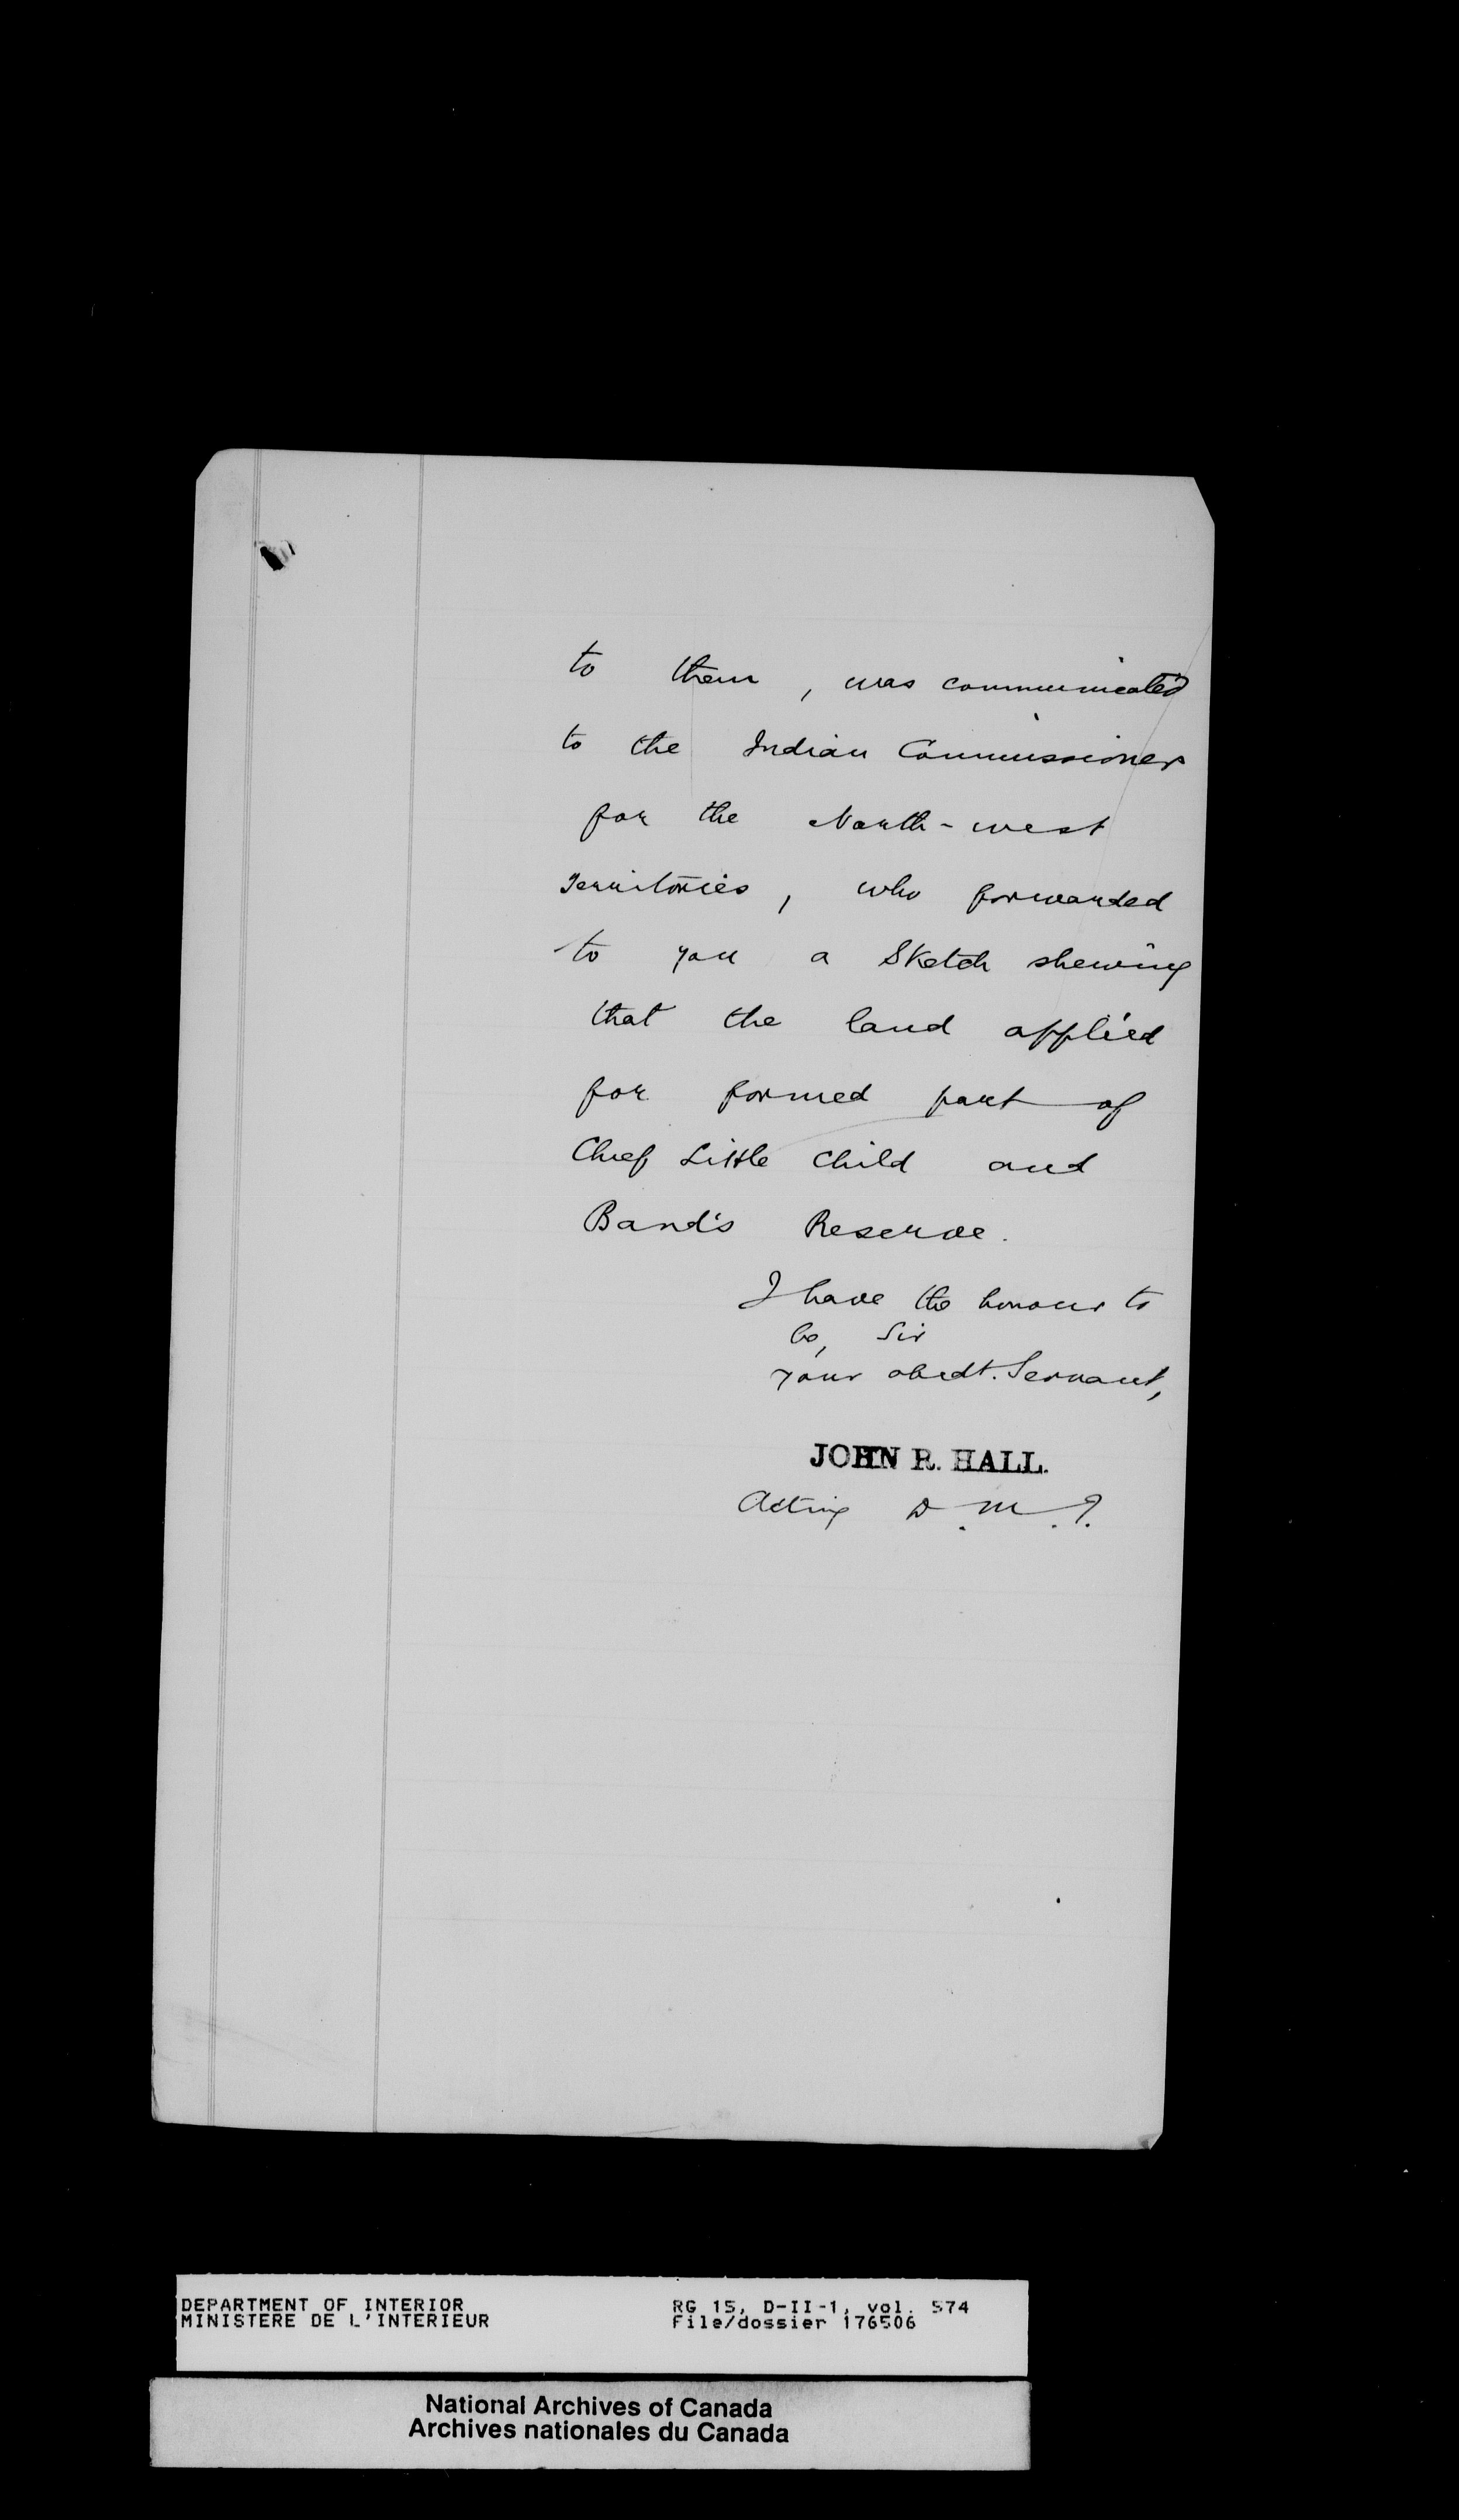 to them, was communicated
to the Indian Commissioner
for the North-west
Territories, who forwarded
to you a Sketch shewing
that the land applied
for formed part of
Chief Little Child and
Band's Reserve.
I have the honour to
be, Sir
your obedt. Servant,
JOHN R. HALL.
Acting D.M.I.
DEPARTMENT OF INTERIOR RG 15, D-II-1, vol. 574
MINISTERE DE L'INTERIEUR File/dossier 176506
National Archives of Canada
Archives nationales du Canada